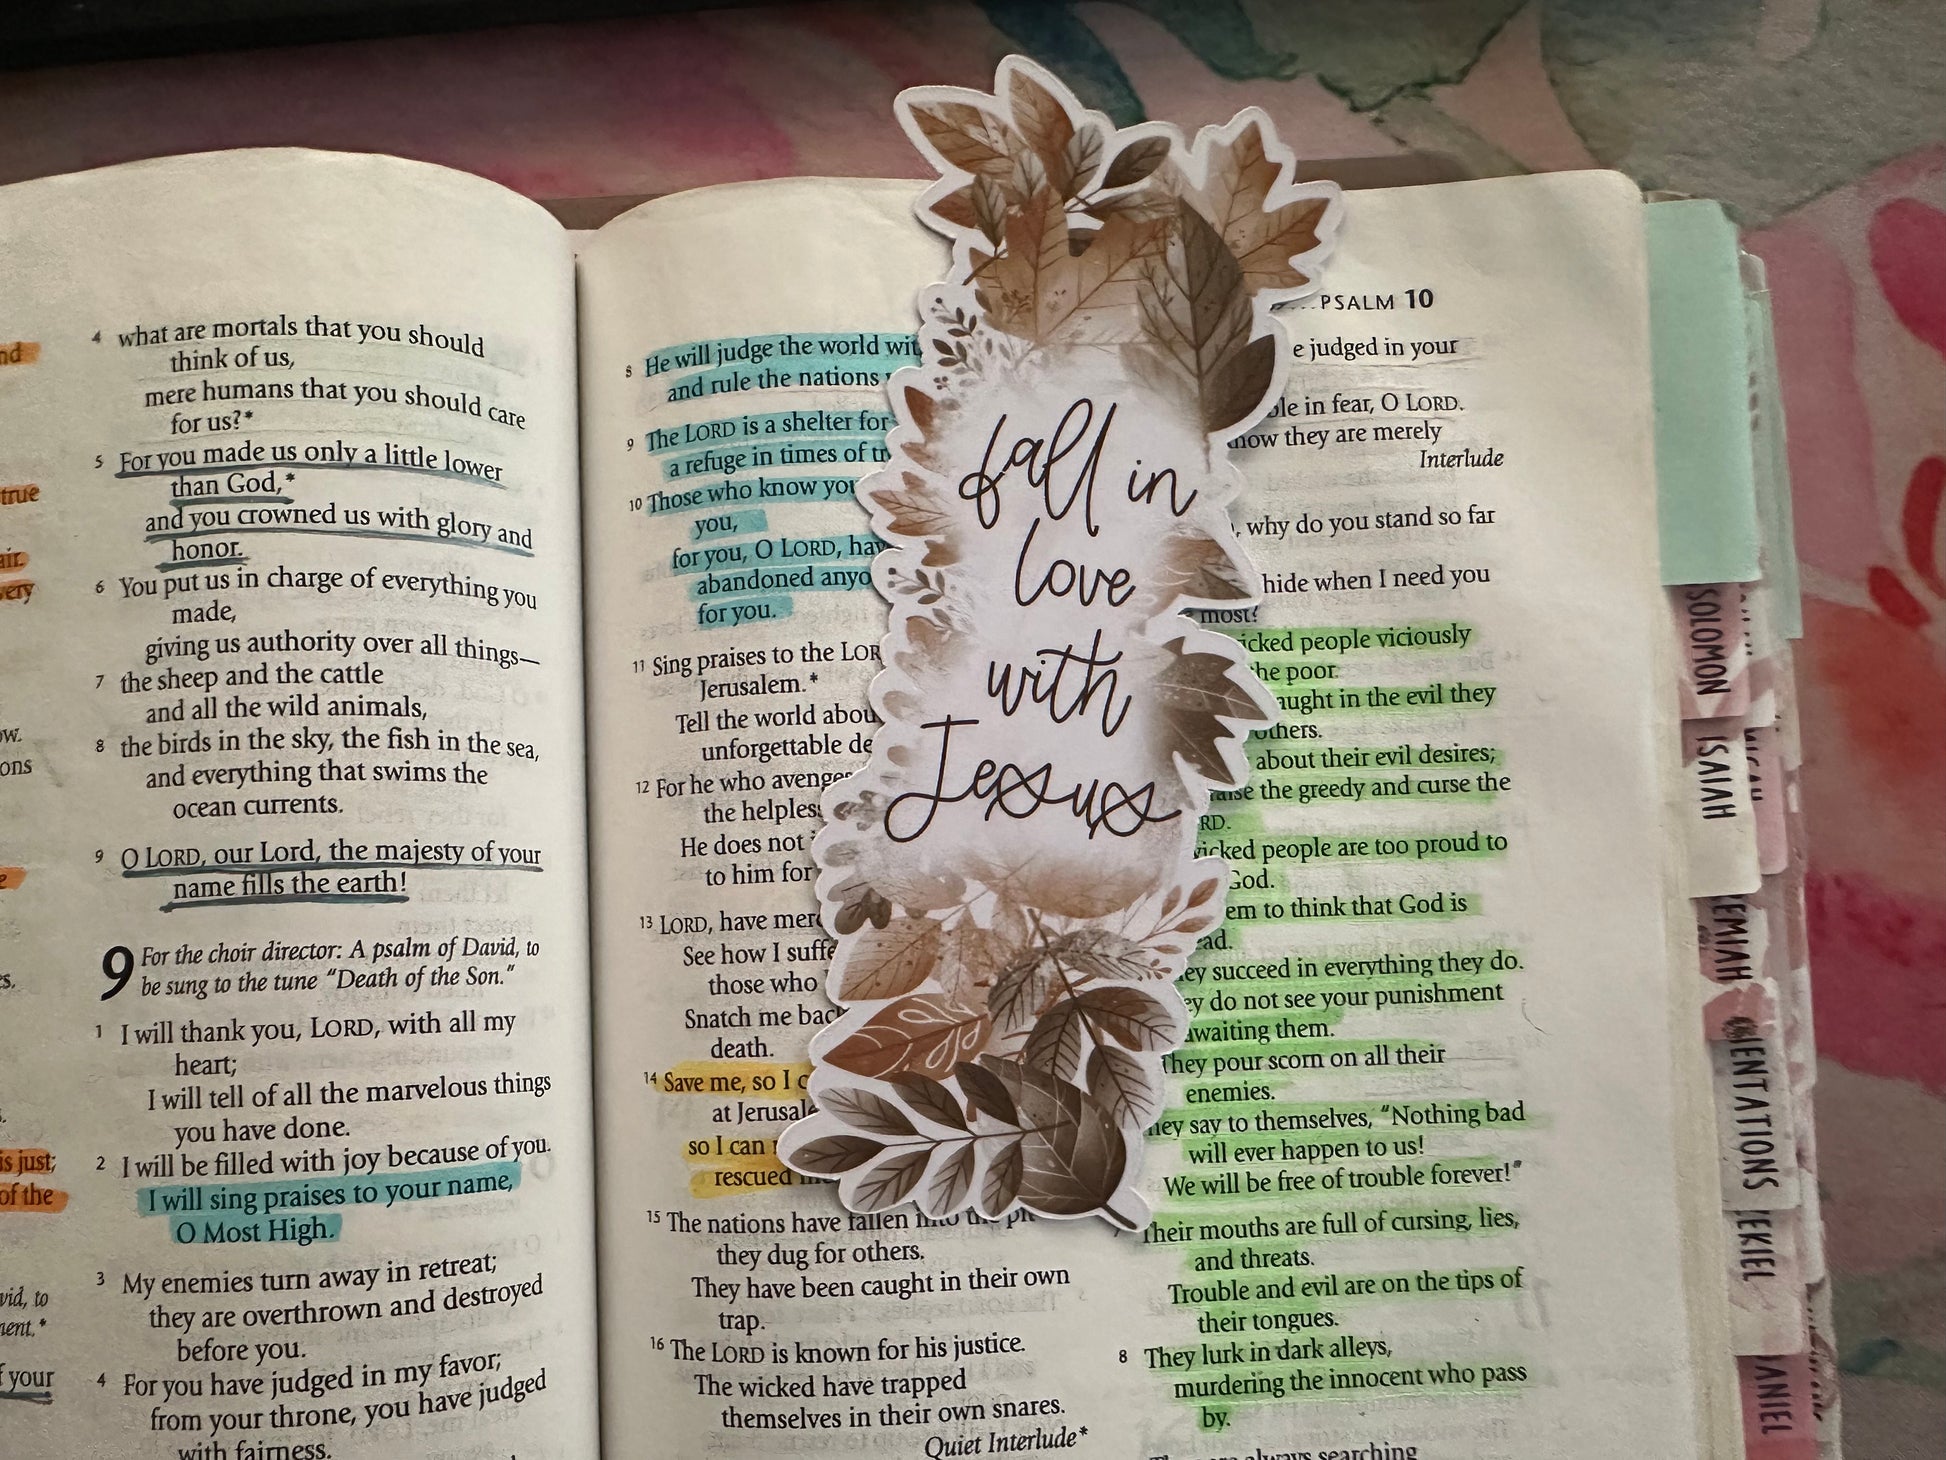 nd
true
air.
very
ow.
ions
e
s.
is just;
of the
vid, to
ment.*
f your
4 what are mortals that you should
think of us,
mere humans that you should care
for us?*
5 For you made us only a little lower
than God,*
and you crowned us with glory and
honor.
6 You put us in charge of everything you
made,
giving us authority over all things—
7 the sheep and the cattle
and all the wild animals,
8 the birds in the sky, the fish in the sea,
and everything that swims the
ocean currents.
9 O LORD, our Lord, the majesty of your
name fills the earth!
9 For the choir director: A psalm of David, to
be sung to the tune “Death of the Son.”
1 I will thank you, LORD, with all my
heart;
I will tell of all the marvelous things
you have done.
2 I will be filled with joy because of you.
I will sing praises to your name,
O Most High.
3 My enemies turn away in retreat;
they are overthrown and destroyed
before you.
4 For you have judged in my favor;
from your throne, you have judged
with fairness.
8 He will judge the world wit
and rule the nations
9 The LORD is a shelter for
a refuge in times of tr
10 Those who know you
you,
for you, O LORD, hav
abandoned anyo
for you.
11 Sing praises to the LOR
Jerusalem.*
Tell the world abou
unforgettable de
12 For he who avenges
the helpless
He does not i
to him for
13 LORD, have merc
See how I suffe
those who
Snatch me back
death.
14 Save me, so I c
at Jerusale
so I can r
rescued me
15 The nations have fallen into the pit
they dug for others.
They have been caught in their own
trap.
16 The LORD is known for his justice.
The wicked have trapped
themselves in their own snares.
Quiet Interlude*
fall in
love
with
Jesus
PSALM 10
e judged in your
ble in fear, O LORD.
now they are merely
Interlude
, why do you stand so far
hide when I need you
most?
icked people viciously
he poor.
aught in the evil they
others.
about their evil desires;
raise the greedy and curse the
RD.
wicked people are too proud to
God.
em to think that God is
ad.
ey succeed in everything they do.
ey do not see your punishment
awaiting them.
They pour scorn on all their
enemies.
hey say to themselves, “Nothing bad
will ever happen to us!
We will be free of trouble forever!”
7 Their mouths are full of cursing, lies,
and threats.
Trouble and evil are on the tips of
their tongues.
8 They lurk in dark alleys,
murdering the innocent who pass
by.
always searching
SOLOMON
ISAIAH
EMIAH
ENTATIONS
EKIEL
ANIEL